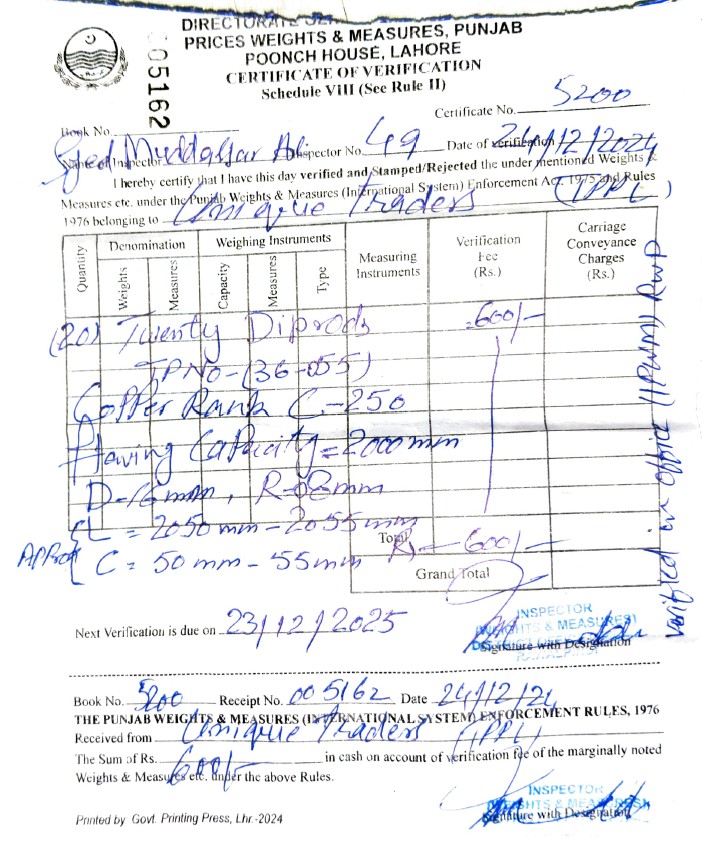 DIRECTORATE GEN
PRICES WEIGHTS & MEASURES, PUNJAB
POONCH HOUSE, LAHORE
CERTIFICATE OF VERIFICATION
Schedule VIII (See Rule II)
005162
Certificate No. 5200
Book No.
Name of Inspector Syed Muddassar Ali Inspector No. 49 Date of verification 24/12/2024
I hereby certify that I have this day verified and Stamped/Rejected the under mentioned Weights &
Measures etc. under the Punjab Weights & Measures (International System) Enforcement Act, 1975 and Rules
1976 belonging to Unique Traders (IPPL)
Quantity
Denomination
Weights
Measures
Weighing Instruments
Capacity
Measures
Type
Measuring Instruments
Verification Fee (Rs.)
Carriage Conveyance Charges (Rs.)
(20) Twenty Diprods =600/-
IPNo-(36-055)
Copper Rank C-250
Having Capacity = 2000mm
D-16mm, R-08mm
L = 2050 mm - 2055 mm
Approx
C = 50 mm - 55mm
Total Rs - 600/-
Grand Total
verified in office (IPWM) RWP
Next Verification is due on 23/12/2025
INSPECTOR
(WEIGHTS & MEASURES)
Signature with Designation
Book No. 5200 Receipt No. 005162 Date 24/12/24
THE PUNJAB WEIGHTS & MEASURES (INTERNATIONAL SYSTEM) ENFORCEMENT RULES, 1976
Received from Unique Traders (IPPL)
The Sum of Rs. 600/- in cash on account of verification fee of the marginally noted
Weights & Measures etc. under the above Rules.
INSPECTOR
(WEIGHTS & MEASURES)
Signature with Designation
Printed by Govt. Printing Press, Lhr.-2024